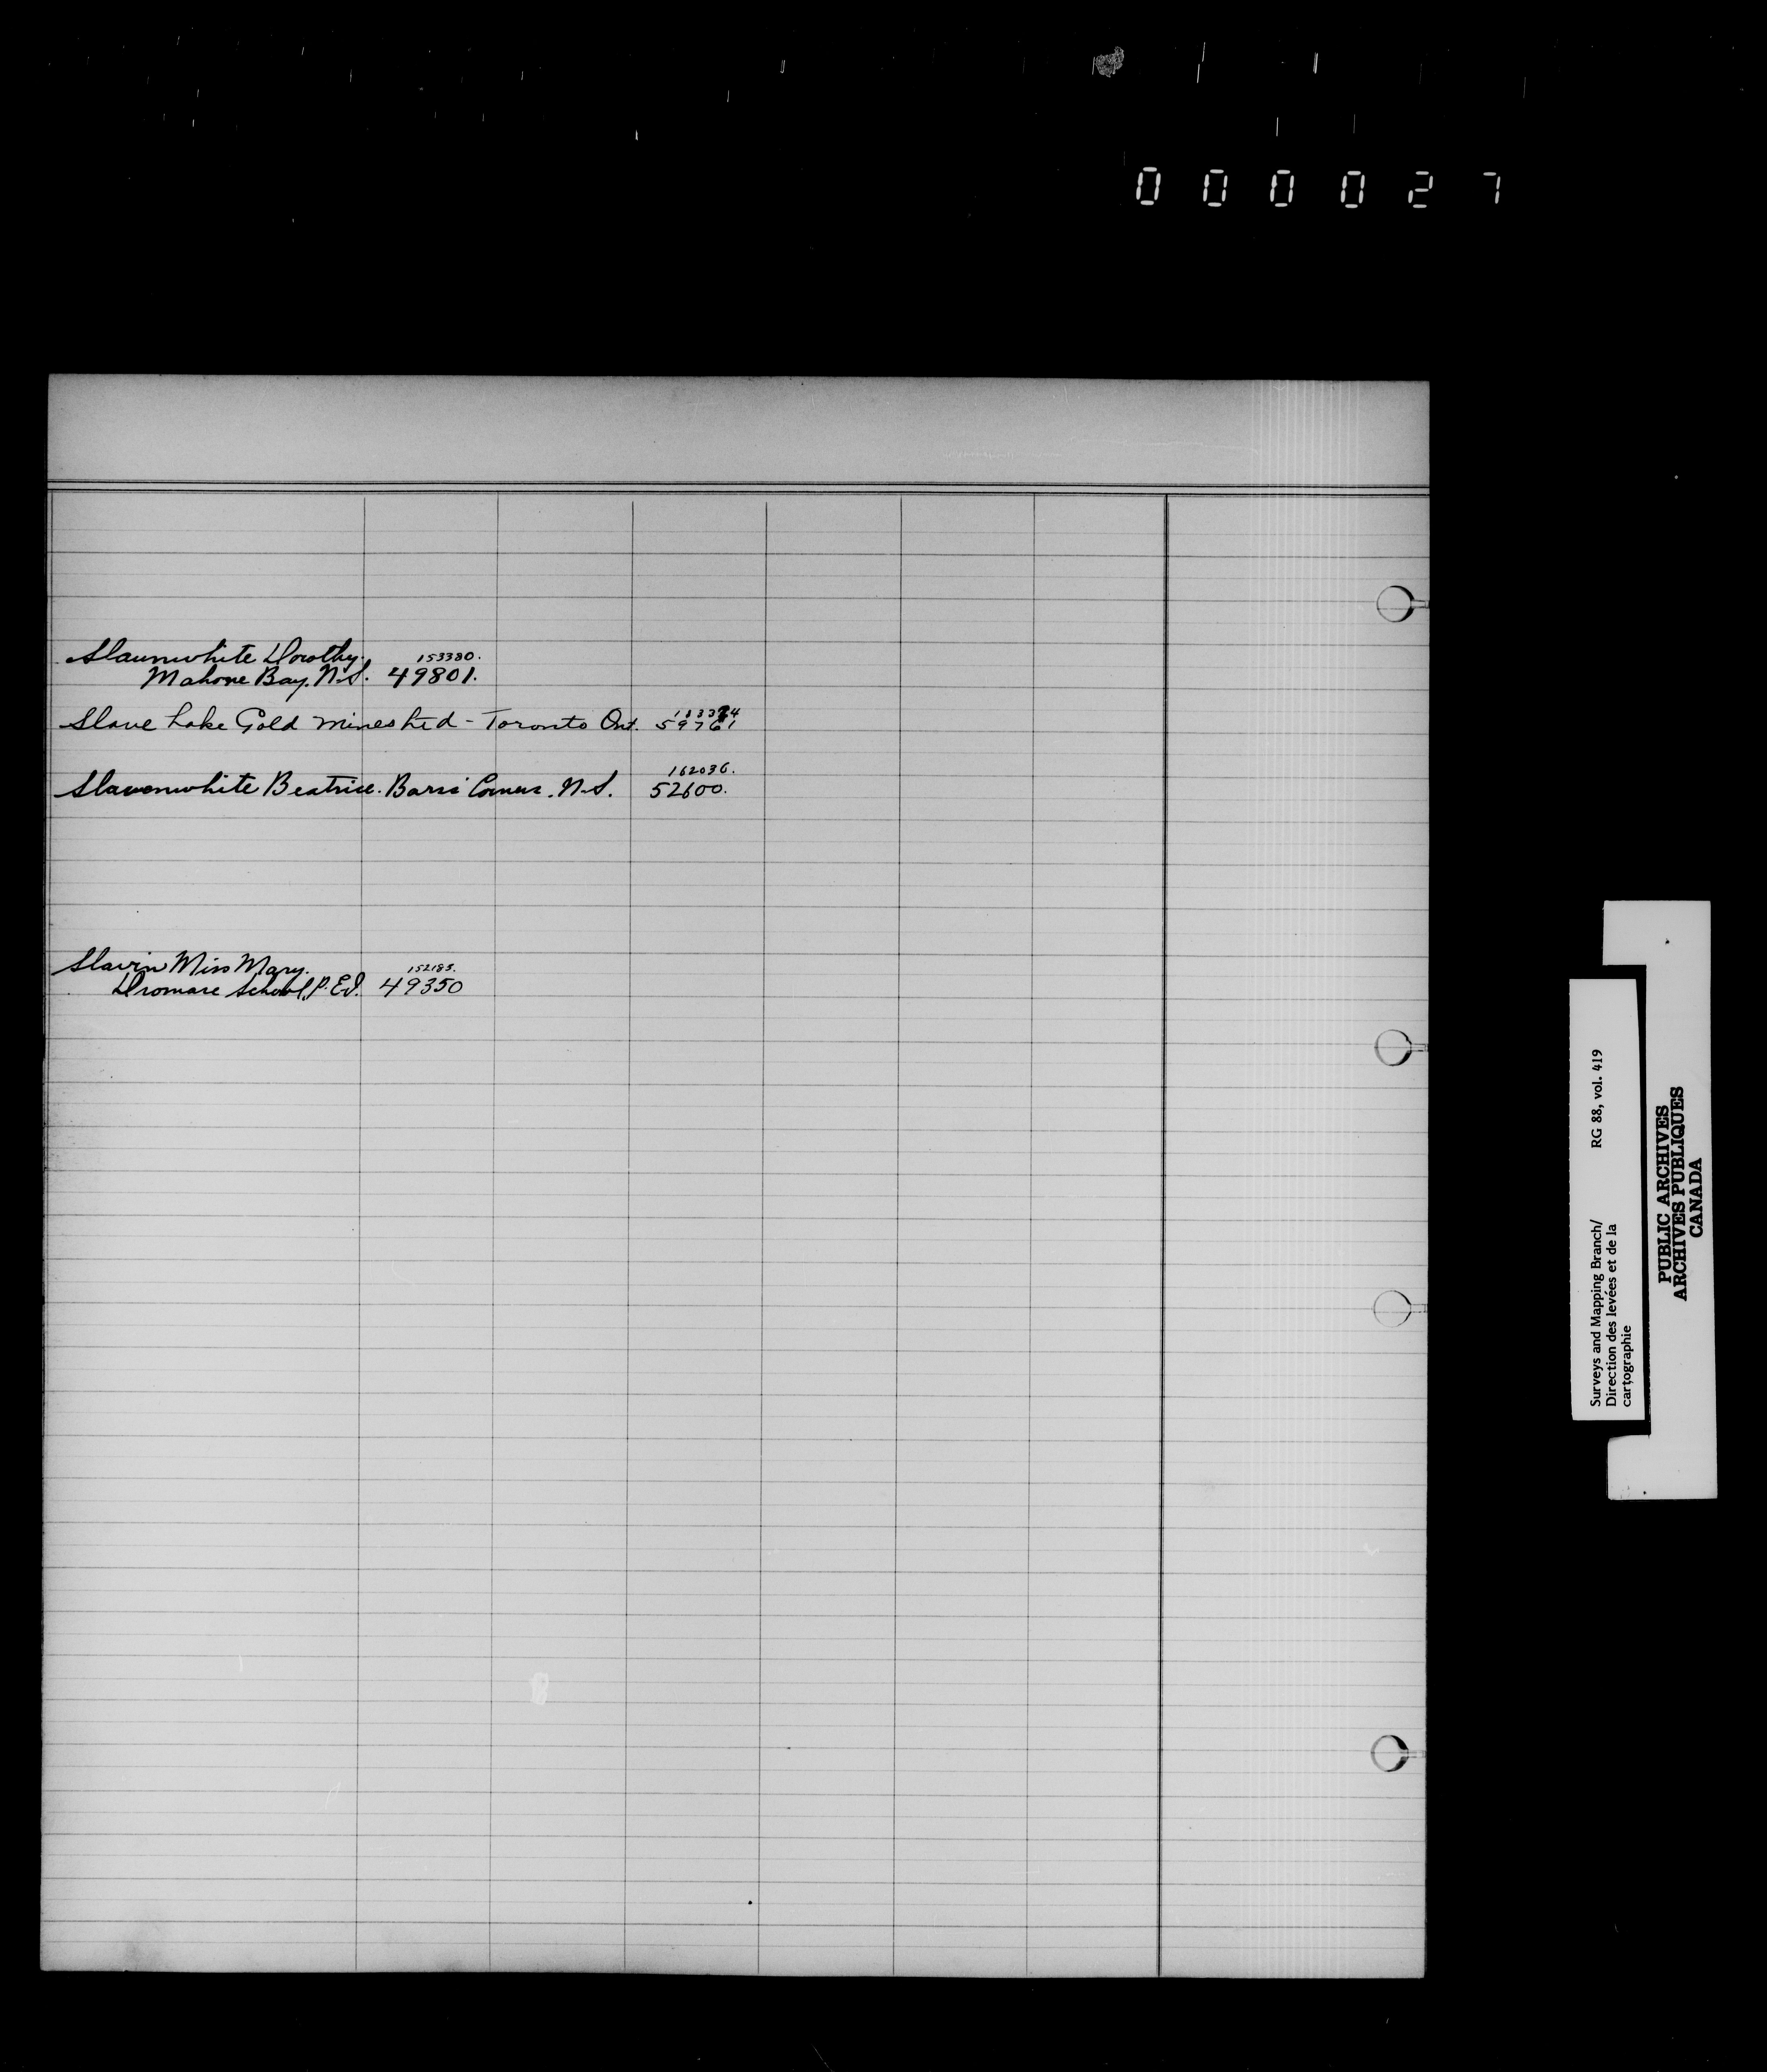 000027
Slaunwhite Dorothy. 153380.
Mahone Bay. N.S. 49801.
Slave Lake Gold Mines Ltd - Toronto Ont. 59761
Slavenwhite Beatrice. Barss Corners. N.S. 162036.
52600.
Slavin Miss Mary. 152185.
Dromare School, P.E.I. 49350
Surveys and Mapping Branch/ RG 88, vol. 419
Direction des levées et de la
cartographie
PUBLIC ARCHIVES
ARCHIVES PUBLIQUES
CANADA